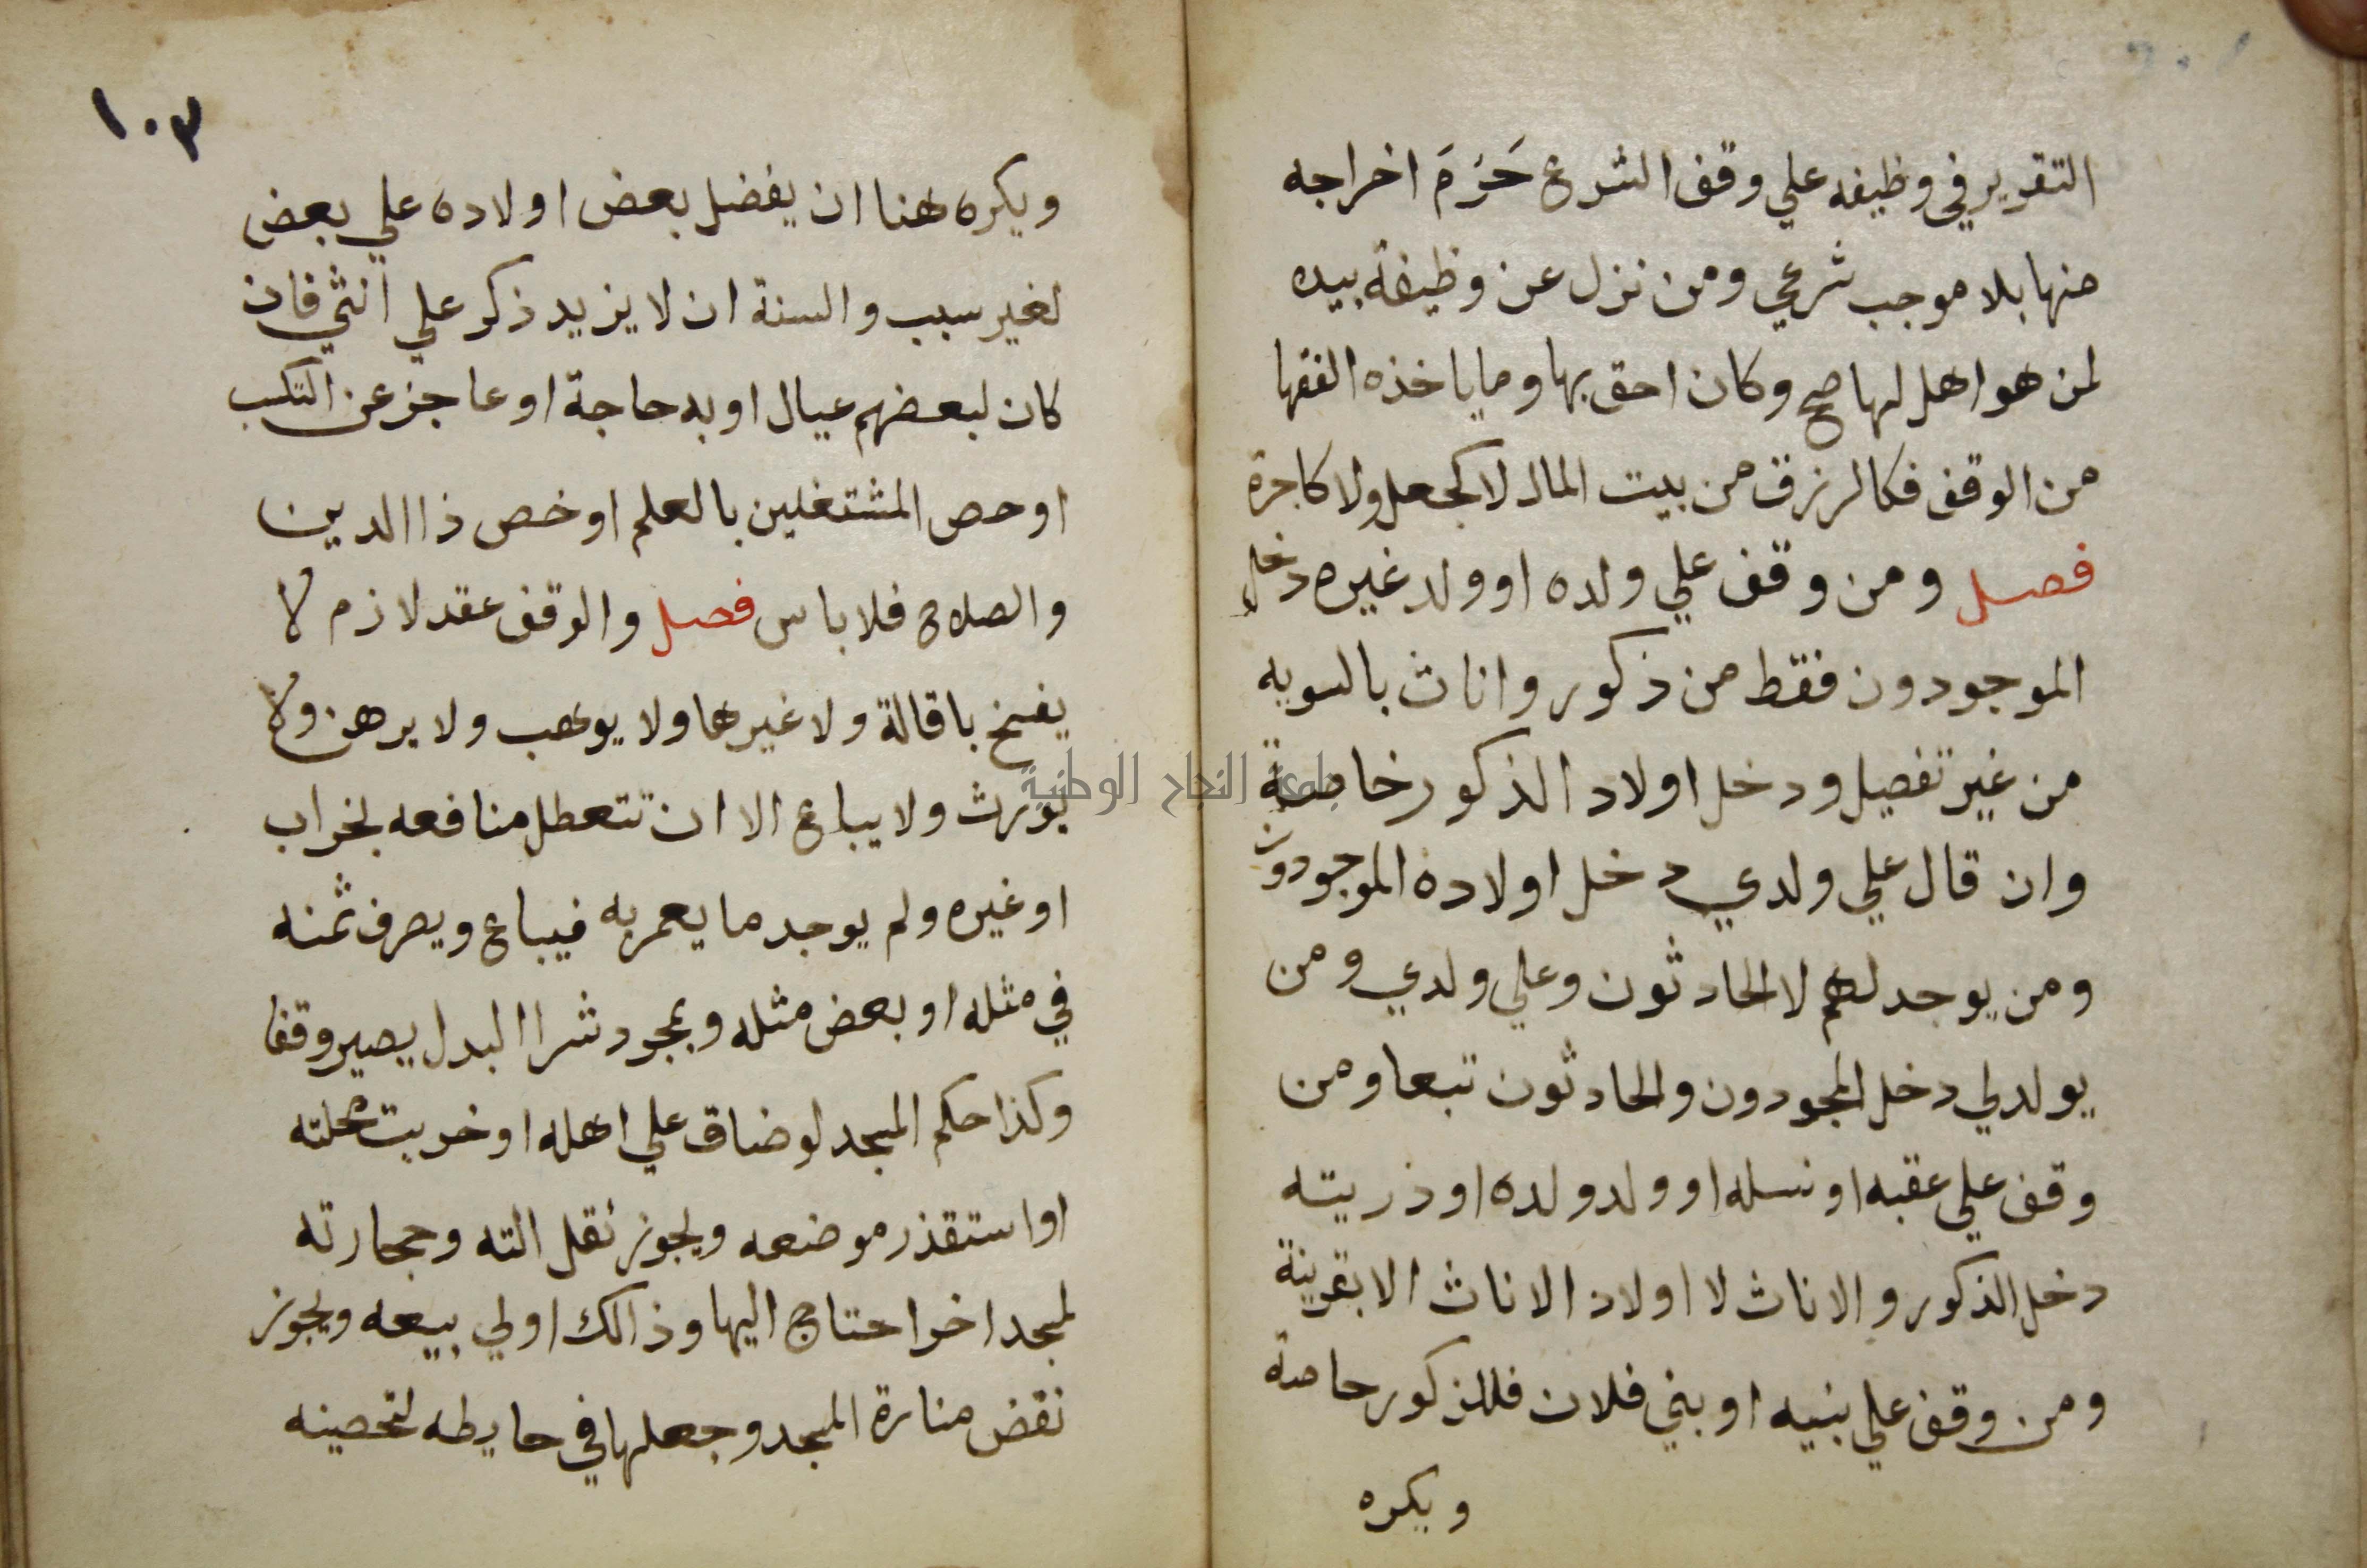 التقرير في وظيفه علي وقف الشرع حَرُمَ اخراجه
منها بلا موجب شرعي ومن نزل عن وظيفة بيده
لمن هو اهل لها صح وكان احق بها وما ياخذه الفقها
من الوقف فكالرزق من بيت المال لا كجعل ولا كاجرة
فصل ومن وقف علي ولده او ولد غيره دخل
الموجودون فقط من ذكور واناث بالسويه
من غير تفصيل ودخل اولاد الذكور خاصة
وان قال علي ولدي دخل اولاده الموجودون
ومن يوجد لهم لا الحادثون وعلي ولدي ومن
يولد لي دخل الموجودون والحادثون تبعا ومن
وقف علي عقبه او نسله او ولد ولده او ذريته
دخل الذكور والاناث لا اولاد الاناث الا بقرينة
ومن وقف علي بنيه او بني فلان فللذكور حاصة
ويكره
١٠٣
ويكره هنا ان يفضل بعض اولاده علي بعض
لغير سبب والسنة ان لا يزيد ذكر علي انثي فان
كان لبعضهم عيال او به حاجة او عاجز عن التكسب
او حص المشتغلين بالعلم او خص ذا الدين
والصلاح فلا باس فصل والوقف عقد لازم لا
يفسخ باقالة ولا غيرها ولا يوهب ولا يرهن ولا
يورث ولا يباع الا ان تتعطل منافعه بخراب
او غيره ولم يوجد ما يعمر به فيباع ويصرف ثمنه
في مثله او بعض مثله وبمجرد شرا البدل يصير وقفا
وكذا حكم المسجد لو ضاق علي اهله او خربت محلته
او استقذر موضعه ويجوز نقل الته وحجارته
لمسجد اخر احتاج اليها وذالك اولي بيعه ويجوز
نقض منارة المسجد وجعلها في حايطه لتحصينه
جامعة النجاح الوطنية